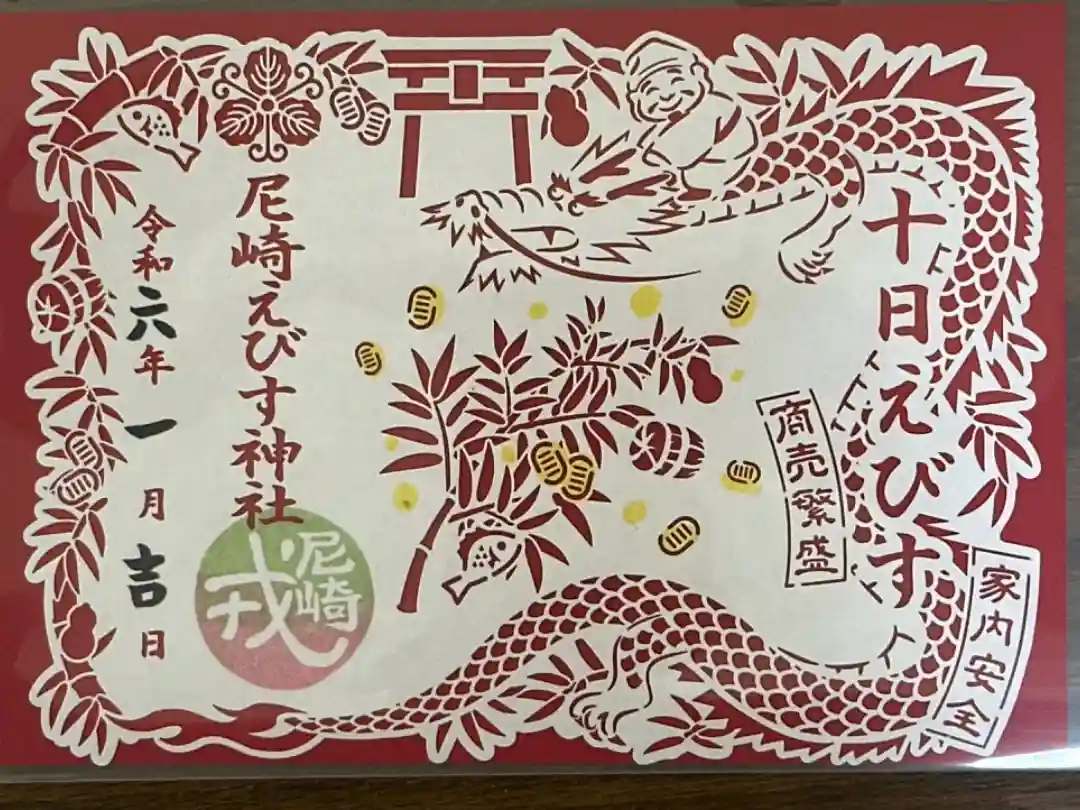 十日えびす
家内安全
商売繁盛
尼崎えびす神社
尼崎
戎
令和六年一月吉日